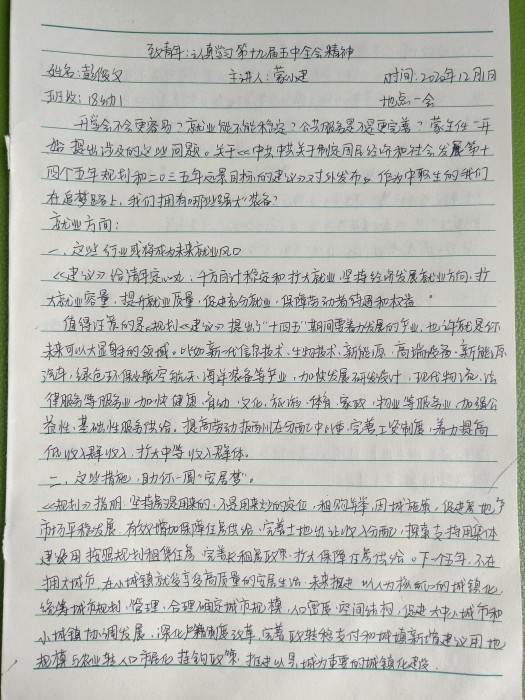 致青年:认真学习第十九届五中全会精神
姓名:彭俊文 主讲人:蒙小建 时间:2020年12月1日
班级:18幼1 地点一会
升学会不会更容易?就业能不能稳定?公共服务是不是更完善?蒙主任一开
始提出涉及的这些问题。关于《中共中央关于制定国民经济和社会发展第十
四个五年规划和二〇三五年远景目标的建议》对外发布。作为中职生的我们
在追梦路上,我们拥有哪些强大"装备?
就业方向:
一、这些行业或将成为未来就业风口
《建议》给青年定心丸:千方百计稳定和扩大就业,坚持经济发展就业方向,扩
大就业容量,提升就业质量,促进充分就业,保障劳动者待遇和权益。
值得注意的是《规划《建议》提出了"十四五"期间要着力发展的产业,也许就是你
未来可以大显身手的领域。比如新一代信息技术、生物技术、新能源、高端装备、新能源
汽车,绿色环保以及航空航天、海洋装备等产业,加快发展研发设计、现代物流、法
律服务等服务业,加快健康、育幼、文化、旅游、体育、家政、物业等服务业,加强公
益性、基础性服务供给。提高劳动报酬在分配中比重,完善工资制度,着力提高
低收入群收入,扩大中等收入群体。
二、这些措施,助你一圆"安居梦"。
《规划》指明,坚持房子是用来的,不是用来炒的定位,租购并举,因城施策,促进房地产
市场平稳发展。有效增加保障性住房供给,完善土地出让收入分配,探索支持用集体
建设用按照规划租赁住房,完善长租房政策,扩大保障性住房供给。下个五年,不在
拥大城市,在小城镇就享受高质量的安居生活。未来推进以人为核心的城镇化,
统筹城市规划、管理,合理确定城市规模、人口密度、空间结构,促进大中小城市和
小城镇协调发展。深化户籍制度改革,完善政转移支付和城镇新增建设用地
规模与农业转人口市民化挂钩政策,推进以县城为重要的城镇化建设。